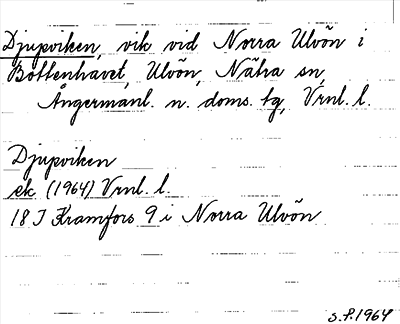 Djupviken, vik vid Norra Ulvön i
Bottenhavet, Ulvön, Nätra sn,
Ångermanl. n. doms. tg, Vrnl. l.
Djupviken
ek (1964) Vrnl. l.
18 J Kramfors 9 i Norra Ulvön
S.F. 1964